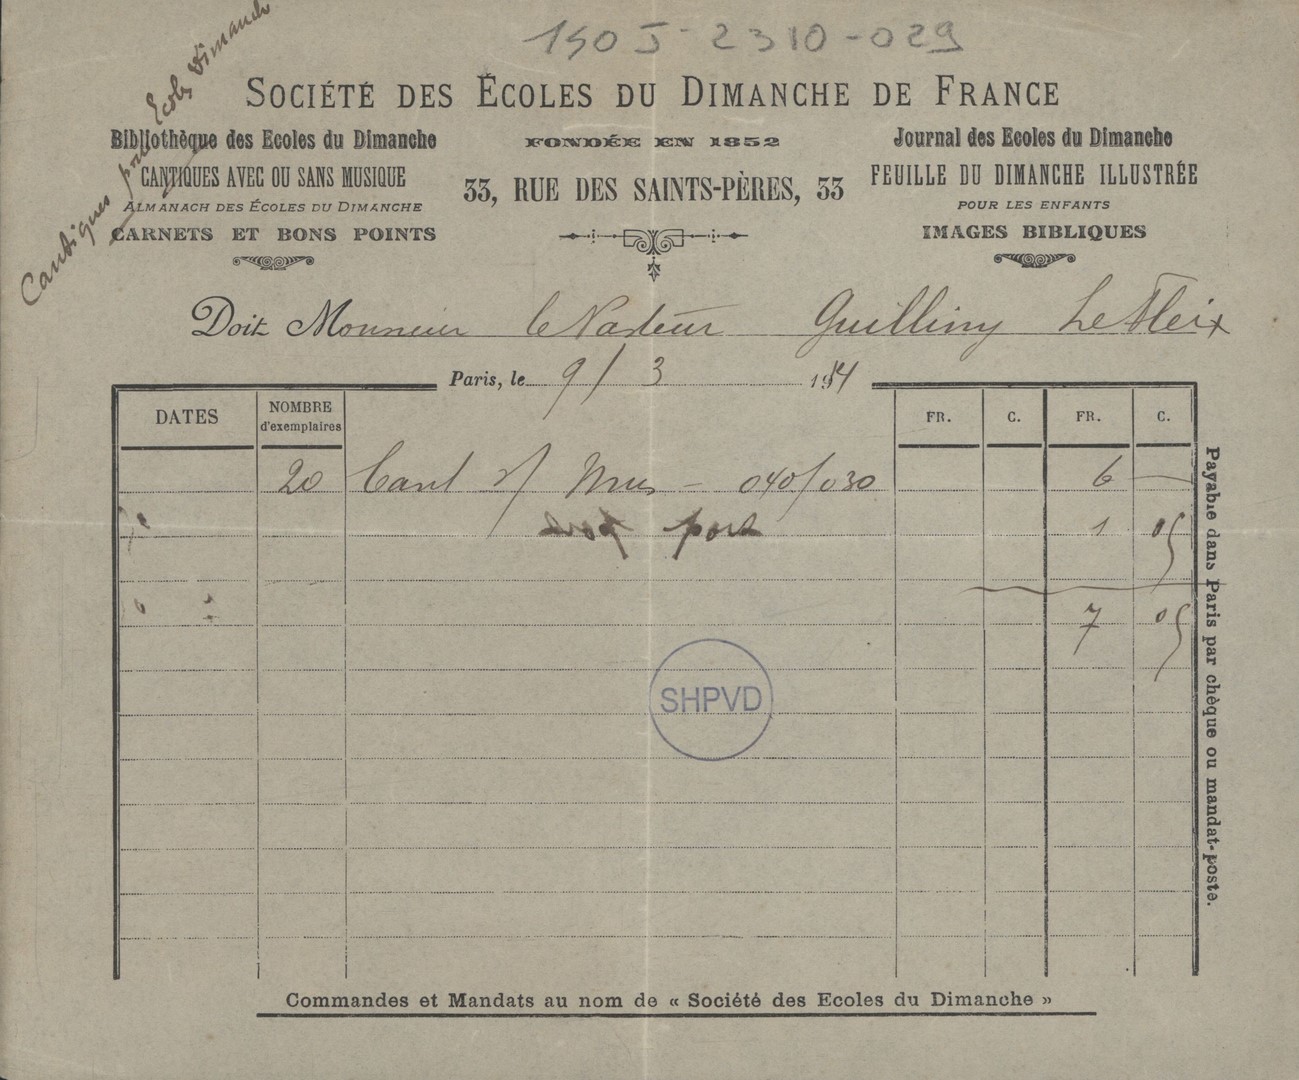 150 J - 2310 - 029
Cantiques pour Ecoles Dimanche
SOCIÉTÉ DES ÉCOLES DU DIMANCHE DE FRANCE
Bibliothèque des Ecoles du Dimanche
CANTIQUES AVEC OU SANS MUSIQUE
ALMANACH DES ÉCOLES DU DIMANCHE
CARNETS ET BONS POINTS
FONDÉE EN 1852
33, RUE DES SAINTS-PÈRES, 33
Journal des Ecoles du Dimanche
FEUILLE DU DIMANCHE ILLUSTRÉE
POUR LES ENFANTS
IMAGES BIBLIQUES
Doit Monsieur le Pasteur Guilliny Le Fleix
Paris, le 9/3
DATES NOMBRE d'exemplaires FR. C. FR. C.
20 Cant s/ Mus - 040/030 6 —
port 1 05
7 05
SHPVD
Payable dans Paris par chèque ou mandat-poste.
Commandes et Mandats au nom de « Société des Ecoles du Dimanche »